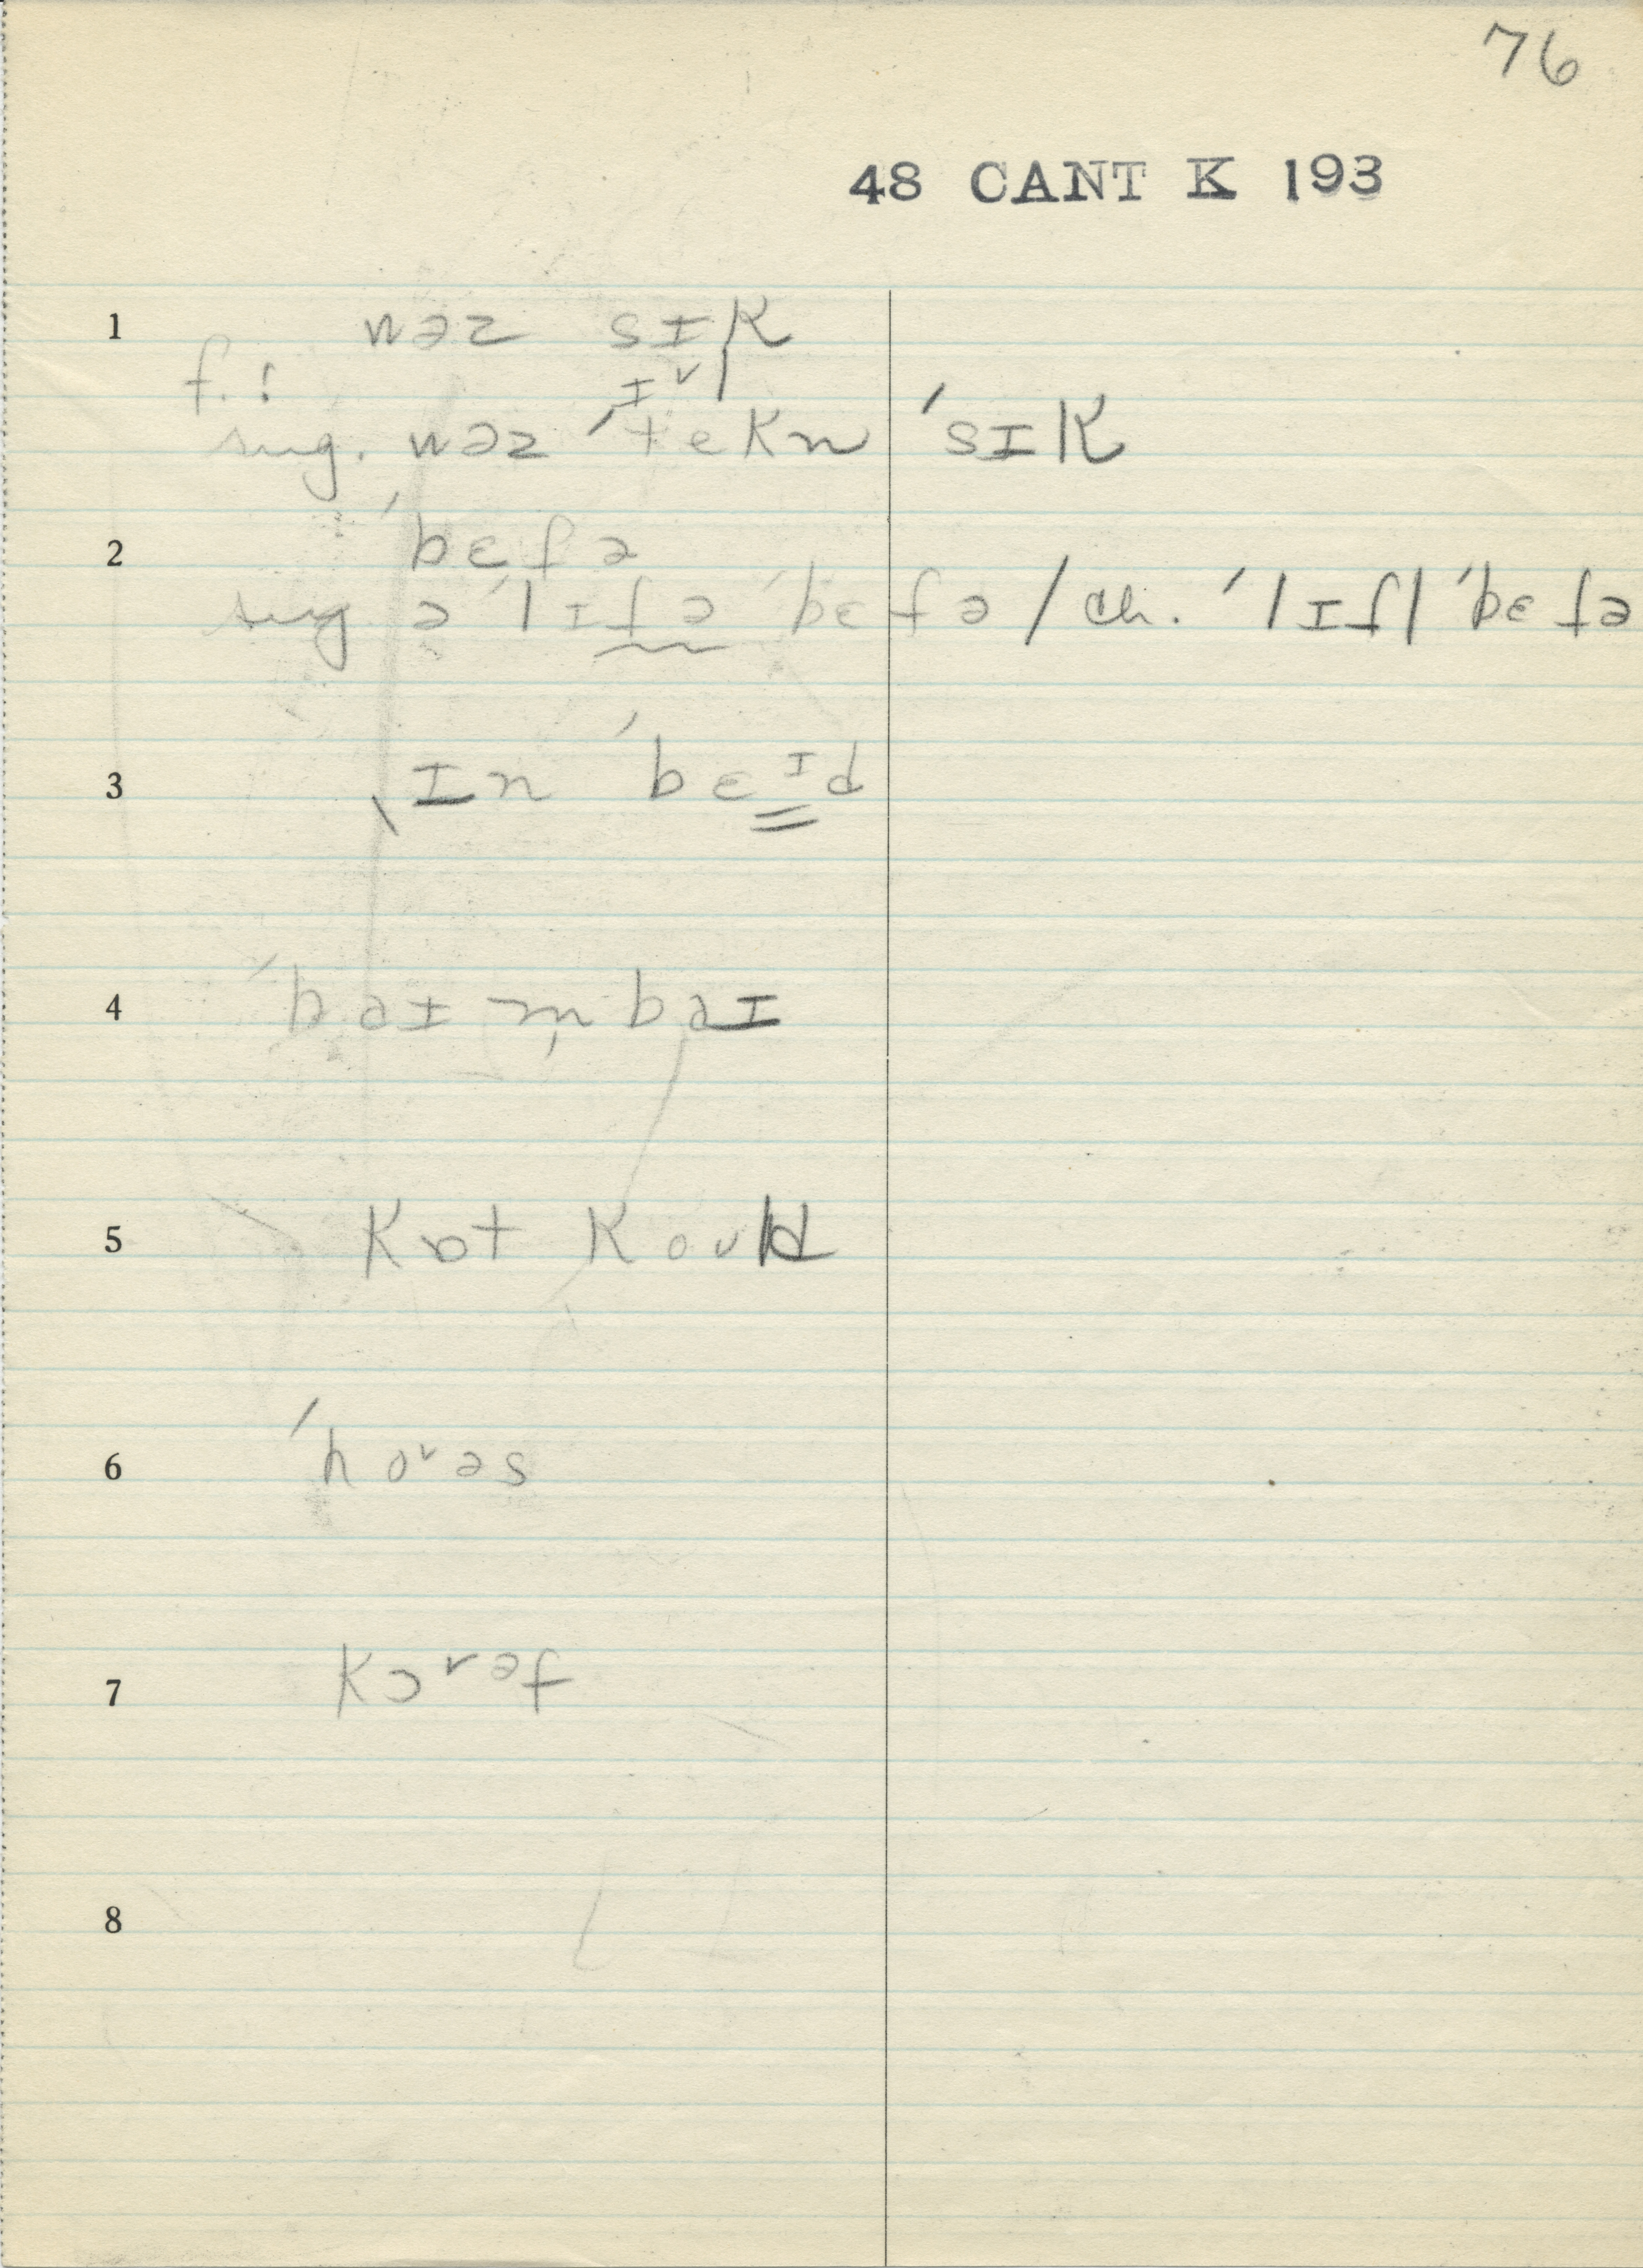 76
48 CANT K 193
1 wəz sɪk
f. :
ɪᵛ
sug. wəz ˈtekn ˈsɪk
2 ˈbɛtə
sug ə ˈlɪtə ˈbɛtə / ch. ˈlɪtl ˈbɛtə
3 ˌɪn ˈbɛᶦd
4 ˈbaɪm̩baɪ
5 kɒt koʊld
6 ˈhoʳəs
7 kɔʳəf
8